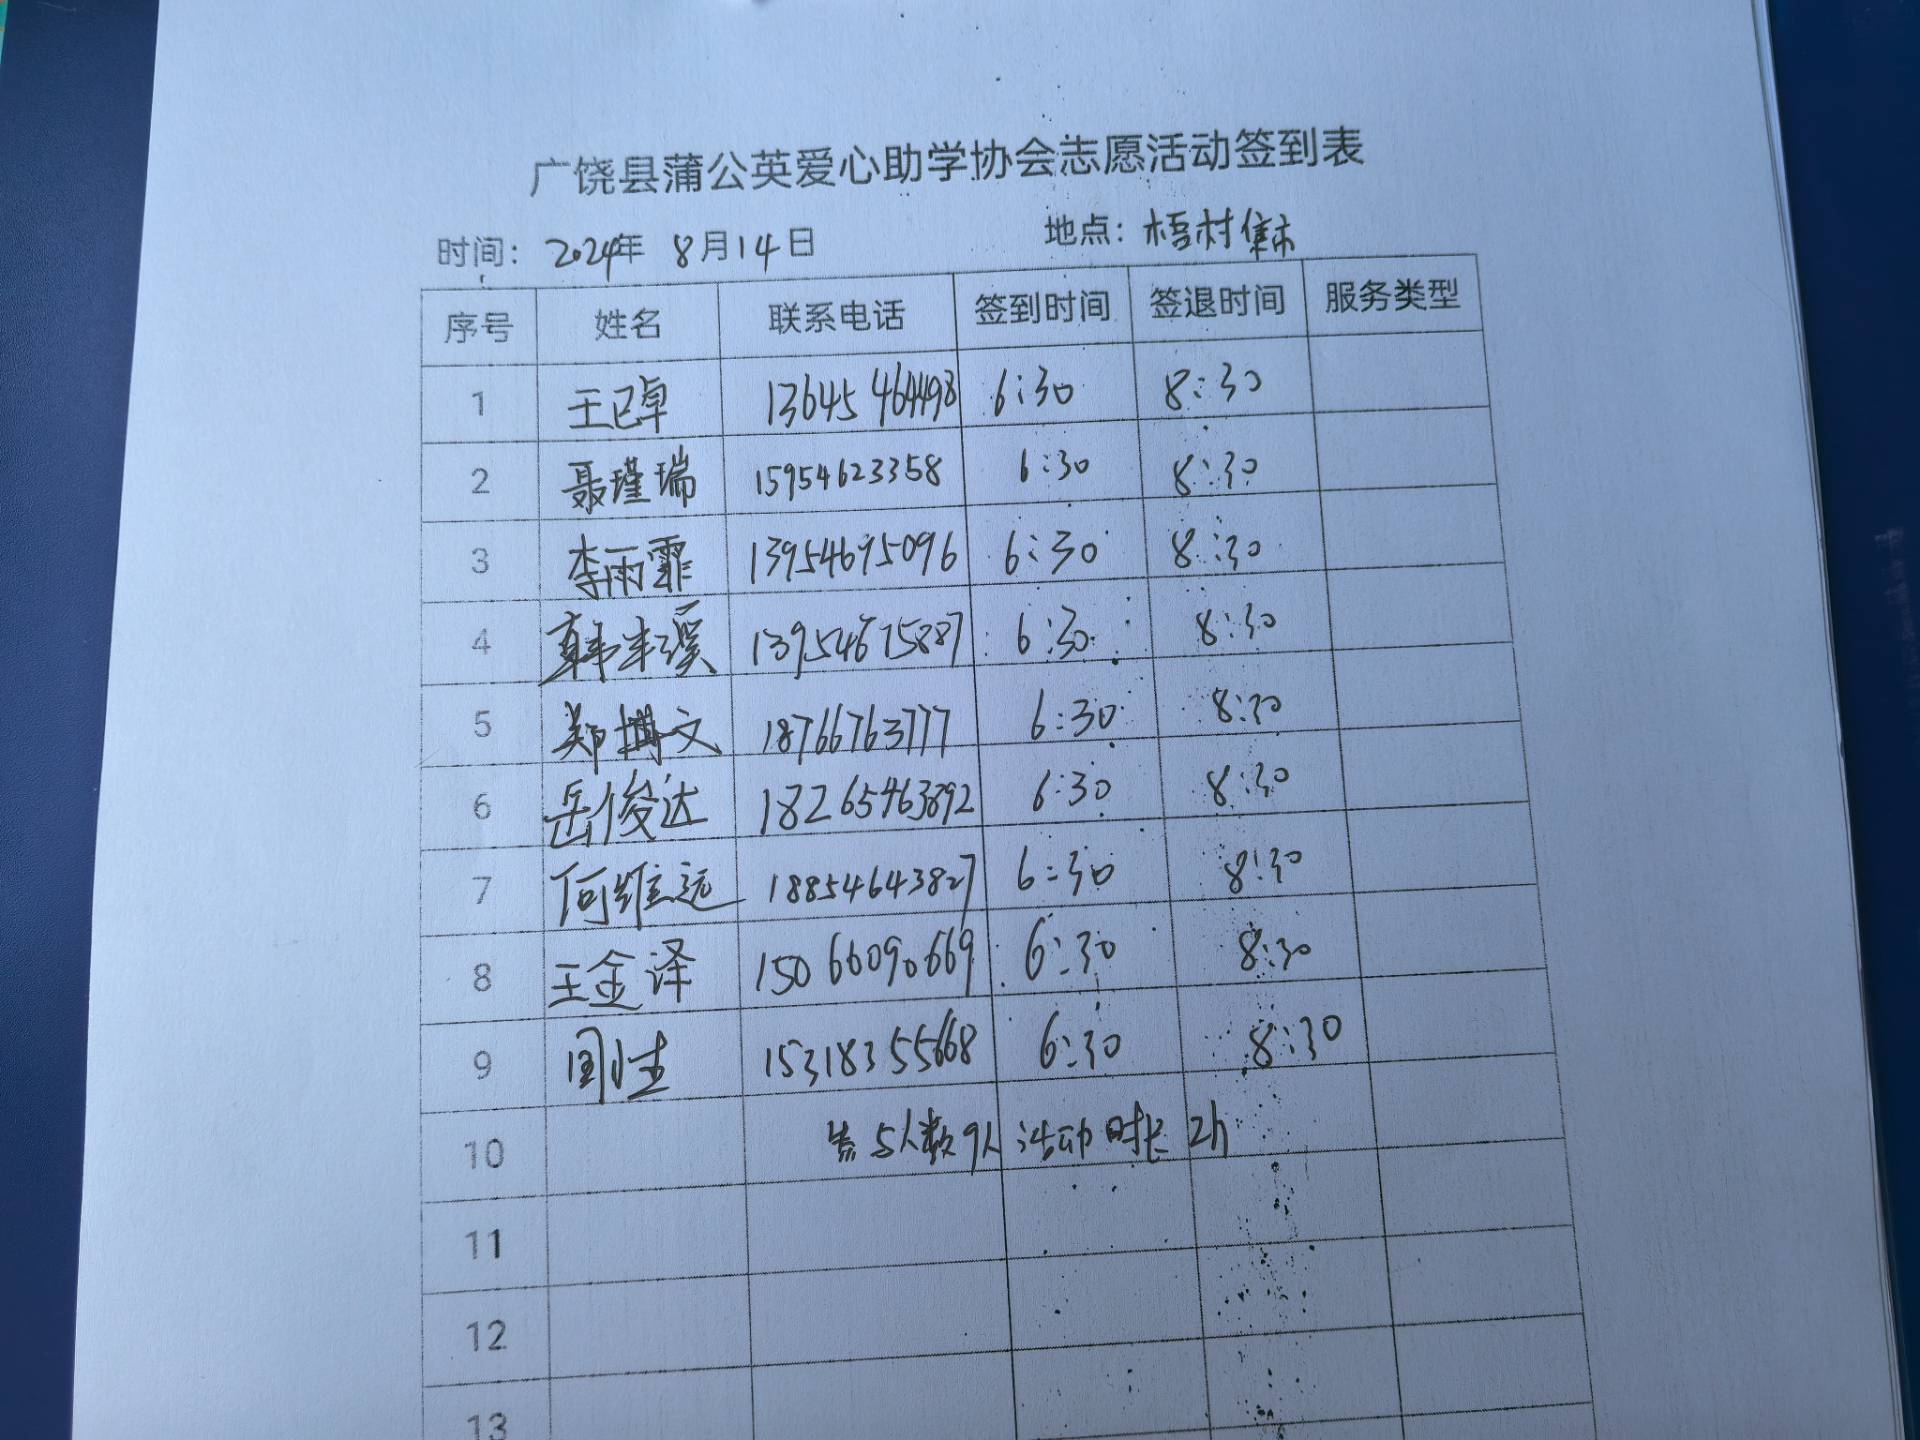 广饶县蒲公英爱心助学协会志愿活动签到表
时间： 2024年 8月14日 地点：梧村集市
序号 姓名 联系电话 签到时间 签退时间 服务类型
1 王已卓 13645464498 6:30 8:30
2 聂瑾瑞 15954623358 6:30 8:30
3 李雨霏 13954695096 6:30 8:30
4 韩米溪 13954675887 6:30 8:30
5 郑博文 18766763777 6:30 8:30
6 岳俊达 18265463892 6:30 8:30
7 何维远 18854643827 6:30 8:30
8 王金泽 15066090669 6:30 8:30
9 15318355668 6:30 8:30
10 参与人数9人 活动时长 2h
11
12
13